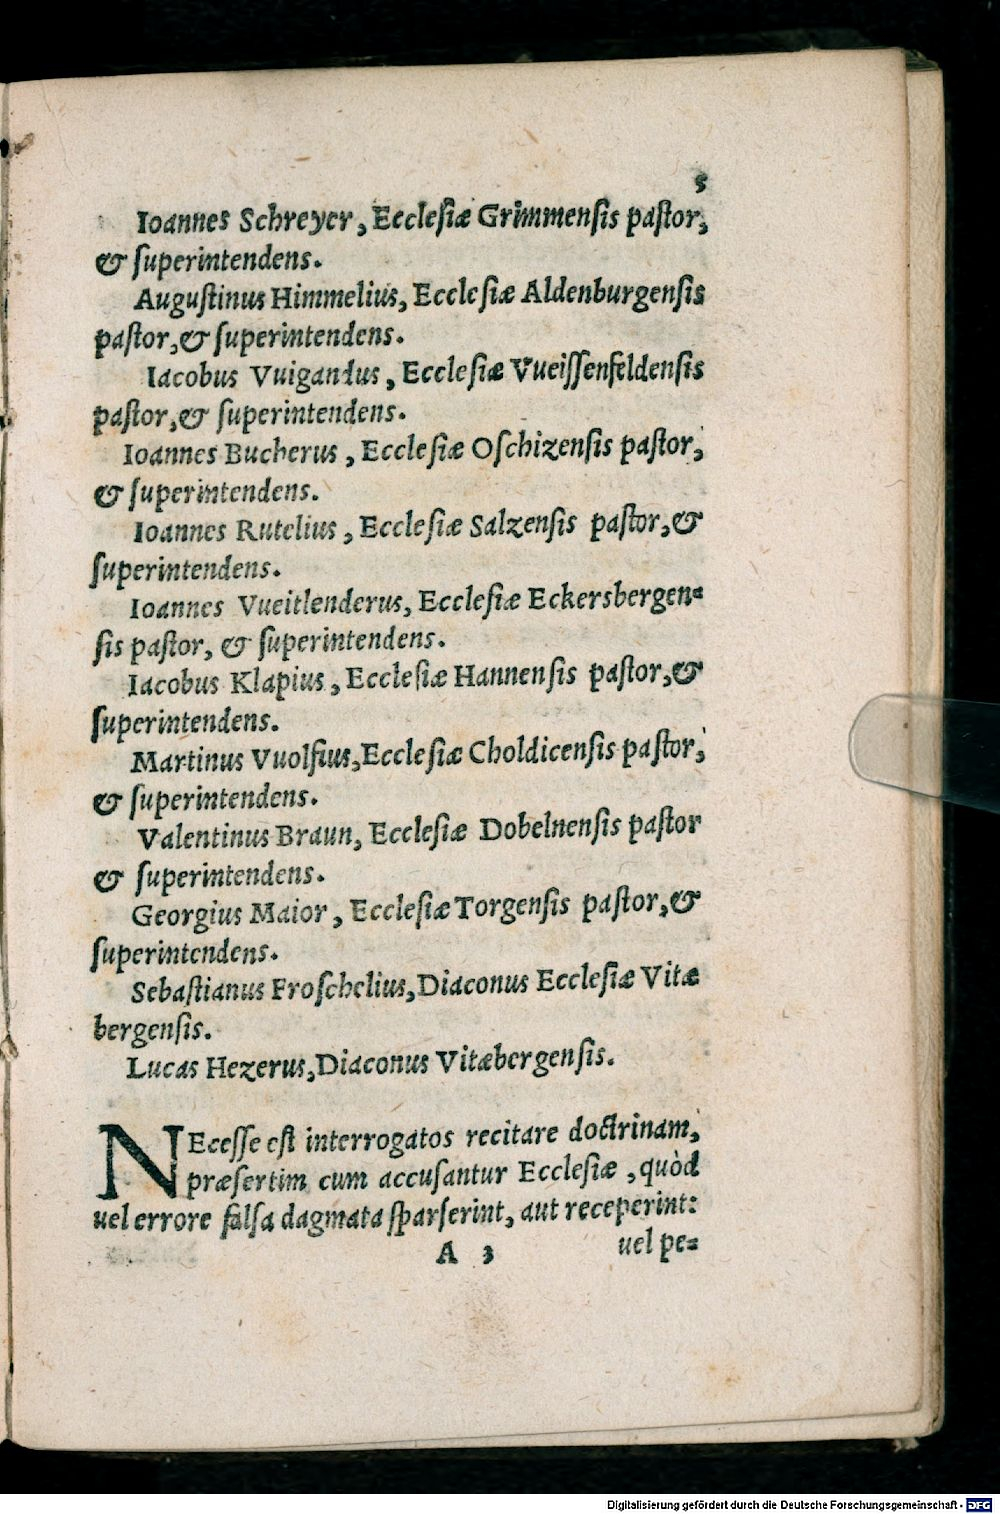 5
Ioannes Schreyer, Ecclesiæ Grimmensis pastor,
& superintendens.
Augustinus Himmelius, Ecclesiæ Aldenburgensis
pastor, & superintendens.
Iacobus Vuigandus, Ecclesiæ Vueissenfeldensis
pastor, & superintendens.
Ioannes Bucherus, Ecclesiæ Oschizensis pastor,
& superintendens.
Ioannes Rutelius, Ecclesiæ Salzensis pastor, &
superintendens.
Ioannes Vueitlenderus, Ecclesiæ Eckersbergen=
sis pastor, & superintendens.
Iacobus Klapius, Ecclesiæ Hannensis pastor, &
superintendens.
Martinus Vuolfius, Ecclesiæ Choldicensis pastor,
& superintendens.
Valentinus Braun, Ecclesiæ Dobelnensis pastor
& superintendens.
Georgius Maior, Ecclesiæ Torgensis pastor, &
superintendens.
Sebastianus Froschelius, Diaconus Ecclesiæ Vitæ
bergensis.
Lucas Hezerus, Diaconus Vitæbergensis.
NEcesse est interrogatos recitare doctrinam,
præsertim cum accusantur Ecclesiæ, quòd
uel errore falsa dagmata sparserint, aut receperint:
A 3 uel pe=
Digitalisierung gefördert durch die Deutsche Forschungsgemeinschaft - DFG